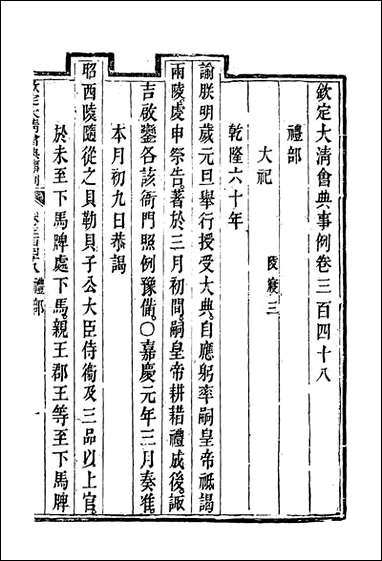 欽定大淸會典事例卷三百四十八
禮部
大祀 陵寢三
乾隆六十年
諭朕明歲元旦舉行授受大典自應躬率嗣皇帝祗謁
兩陵虔申祭告著於三月初間嗣皇帝耕耤禮成後諏
吉啟鑾各該衙門照例豫備○嘉慶元年三月奏准
本月初九日恭謁
昭西陵隨從之貝勒貝子公大臣侍衞及三品以上官
於未至下馬牌處下馬親王郡王等至下馬牌
欽定大淸會典事例 卷三百四十八 禮部 一